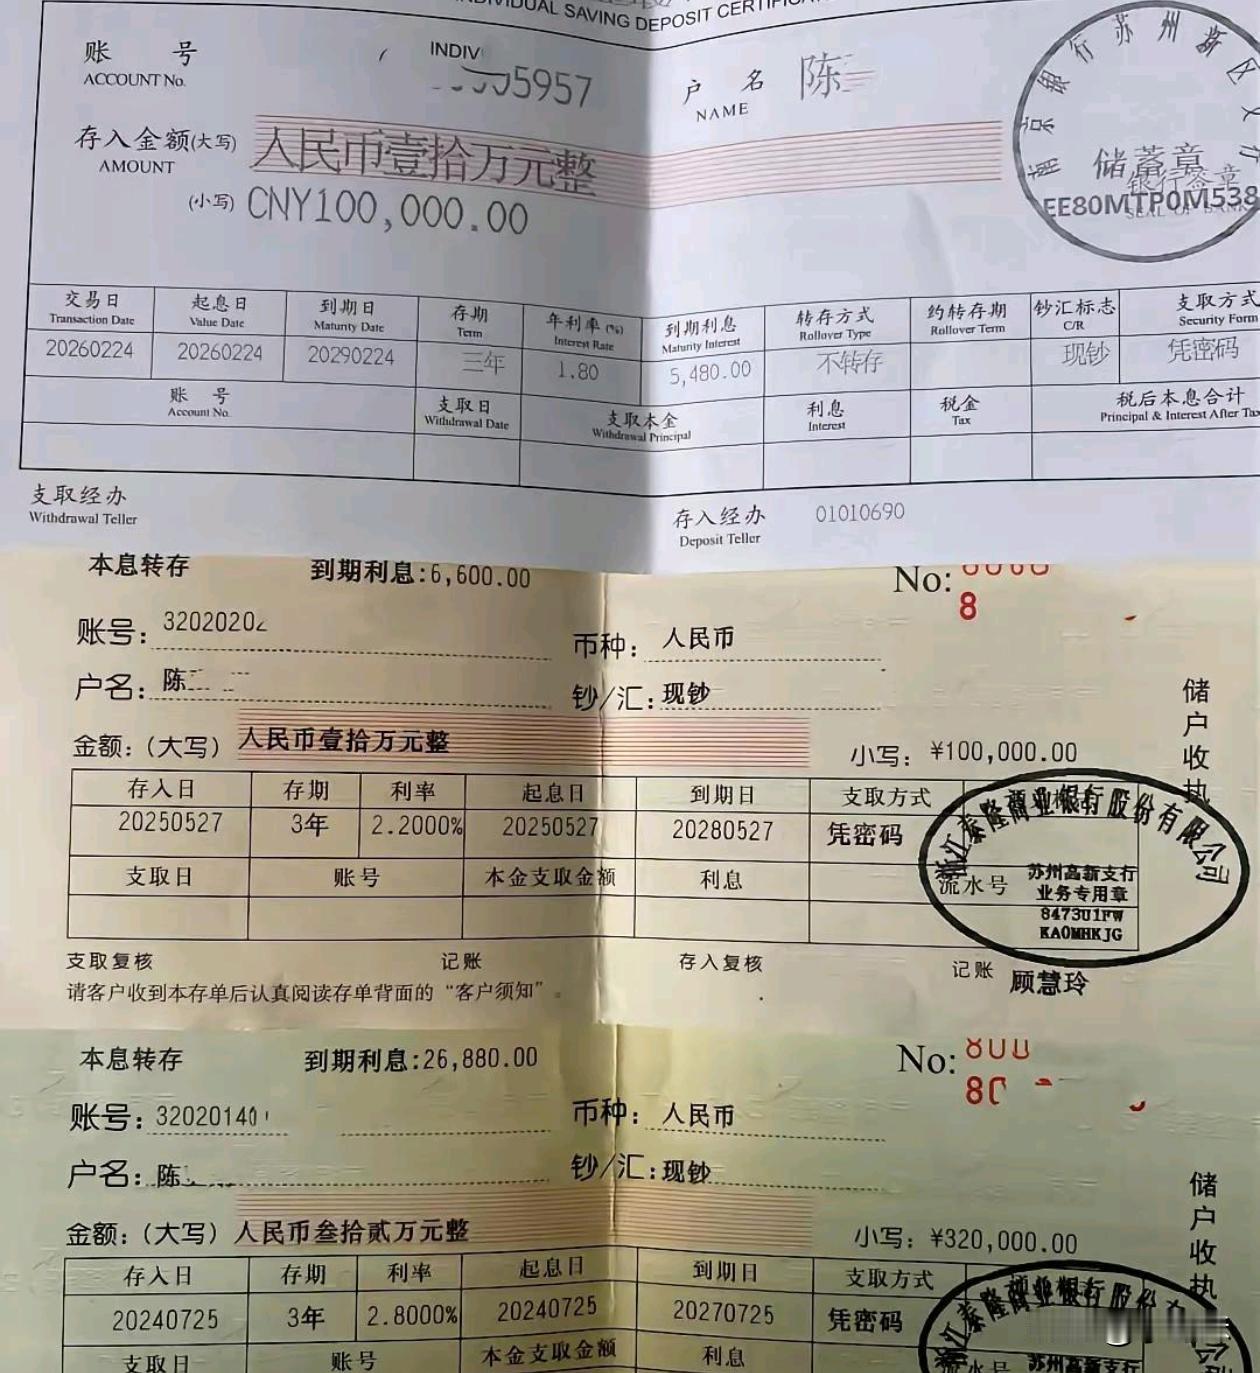 INDIVIDUAL SAVING DEPOSIT
账 号 INDIV
ACCOUNT No. 5957
户 名 陈
NAME
存入金额(大写) 人民币壹拾万元整
AMOUNT
(小写) CNY100,000.00
南京银行苏州新区支行
储蓄章
银行签章
EE80MTP0M538
SEAL OF BANK
交易日 起息日 到期日 存期 年利率(%) 到期利息 转存方式 约转存期 钞汇标志 支取方式
Transaction Date Value Date Maturity Date Term Interest Rate Maturity Interest Rollover Type Rollover Term C/R Security Form
20260224 20260224 20290224 三年 1.80 5,480.00 不转存 现钞 凭密码
账 号 支取日 支取本金 利息 税金 税后本息合计
Account No. Withdrawal Date Withdrawal Principal Interest Tax Principal & Interest After Tax
支取经办 存入经办 01010690
Withdrawal Teller Deposit Teller
本息转存 到期利息:6,600.00 No:
8
账号: 3202020 币种: 人民币
户名: 陈 钞/汇: 现钞
金额:(大写) 人民币壹拾万元整 小写: ¥100,000.00
储户收执
存入日 存期 利率 起息日 到期日 支取方式
20250527 3年 2.2000% 20250527 20280527 凭密码
浙江泰隆商业银行股份有限公司
支取日 账号 本金支取金额 利息 流水号
苏州高新支行
业务专用章
8473U1FW
KA0MHKJG
支取复核 记账 存入复核 记账 顾慧玲
请客户收到本存单后认真阅读存单背面的“客户须知”。
本息转存 到期利息:26,880.00 No: 800
80
账号: 32020140 币种: 人民币
户名: 陈 钞/汇: 现钞
金额:(大写) 人民币叁拾贰万元整 小写: ¥320,000.00
储户收执
存入日 存期 利率 起息日 到期日 支取方式
20240725 3年 2.8000% 20240725 20270725 凭密码
浙江泰隆商业银行股份
支取日 账号 本金支取金额 利息 流水号
苏州高新支行